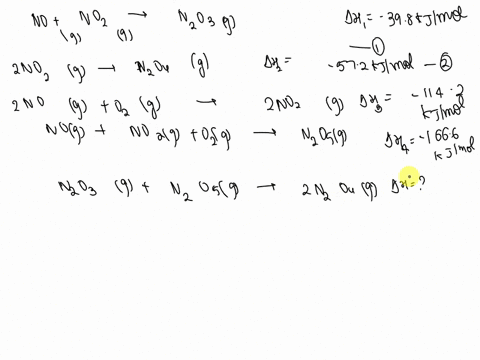 NO + NO2 → N2O3 (g) ΔH1 = -39.8 kJ/mol
(g) (g) — ①
2NO2 (g) → N2O4 (g) ΔH2 = -57.2 kJ/mol — ②
2NO (g) + O2 (g) → 2NO2 (g) ΔH3 = -114.2 kJ/mol
NO(g) + NO2(g) + O2(g) → N2O5(g) ΔH4 = -166.6 kJ/mol
N2O3 (g) + N2O5(g) → 2N2O4 (g) ΔH = ?